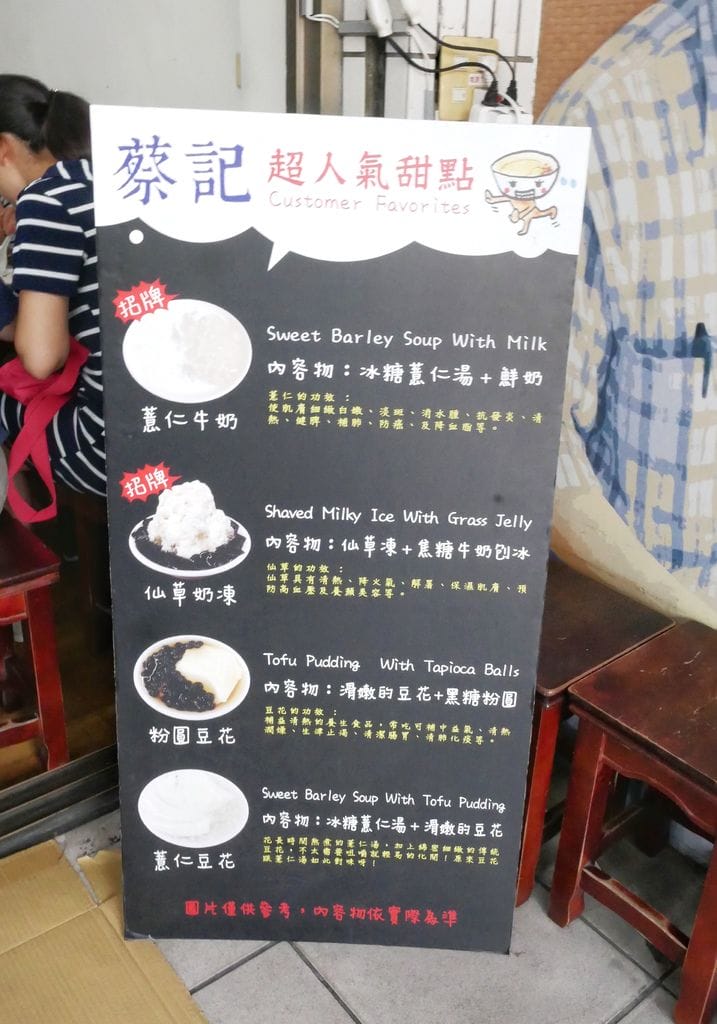 蔡記 超人氣甜點
Customer Favorites
招牌
薏仁牛奶
Sweet Barley Soup With Milk
內容物：冰糖薏仁湯+鮮奶
薏仁的功效：
使肌膚細緻白嫩、淡斑、消水腫、抗發炎、清
熱、健脾、補肺、防癌、及降血脂等。
招牌
仙草奶凍
Shaved Milky Ice With Grass Jelly
內容物：仙草凍+焦糖牛奶刨冰
仙草的功效：
仙草具有清熱、降火氣、解暑、保濕肌膚、預
防高血壓及養顏美容等。
粉圓豆花
Tofu Pudding With Tapioca Balls
內容物：滑嫩的豆花+黑糖粉圓
豆花的功效：
補益清熱的養生食品，常吃可補中益氣、清熱
潤燥、生津止渴、清潔腸胃、清肺化痰等。
薏仁豆花
Sweet Barley Soup With Tofu Pudding
內容物：冰糖薏仁湯+滑嫩的豆花
花長時間熬煮的薏仁湯，加上綿密細緻的傳統
豆花，不太需要咀嚼就輕易的化開！原來豆花
跟薏仁湯如此對味呀！
圖片僅供參考，內容物依實際為準